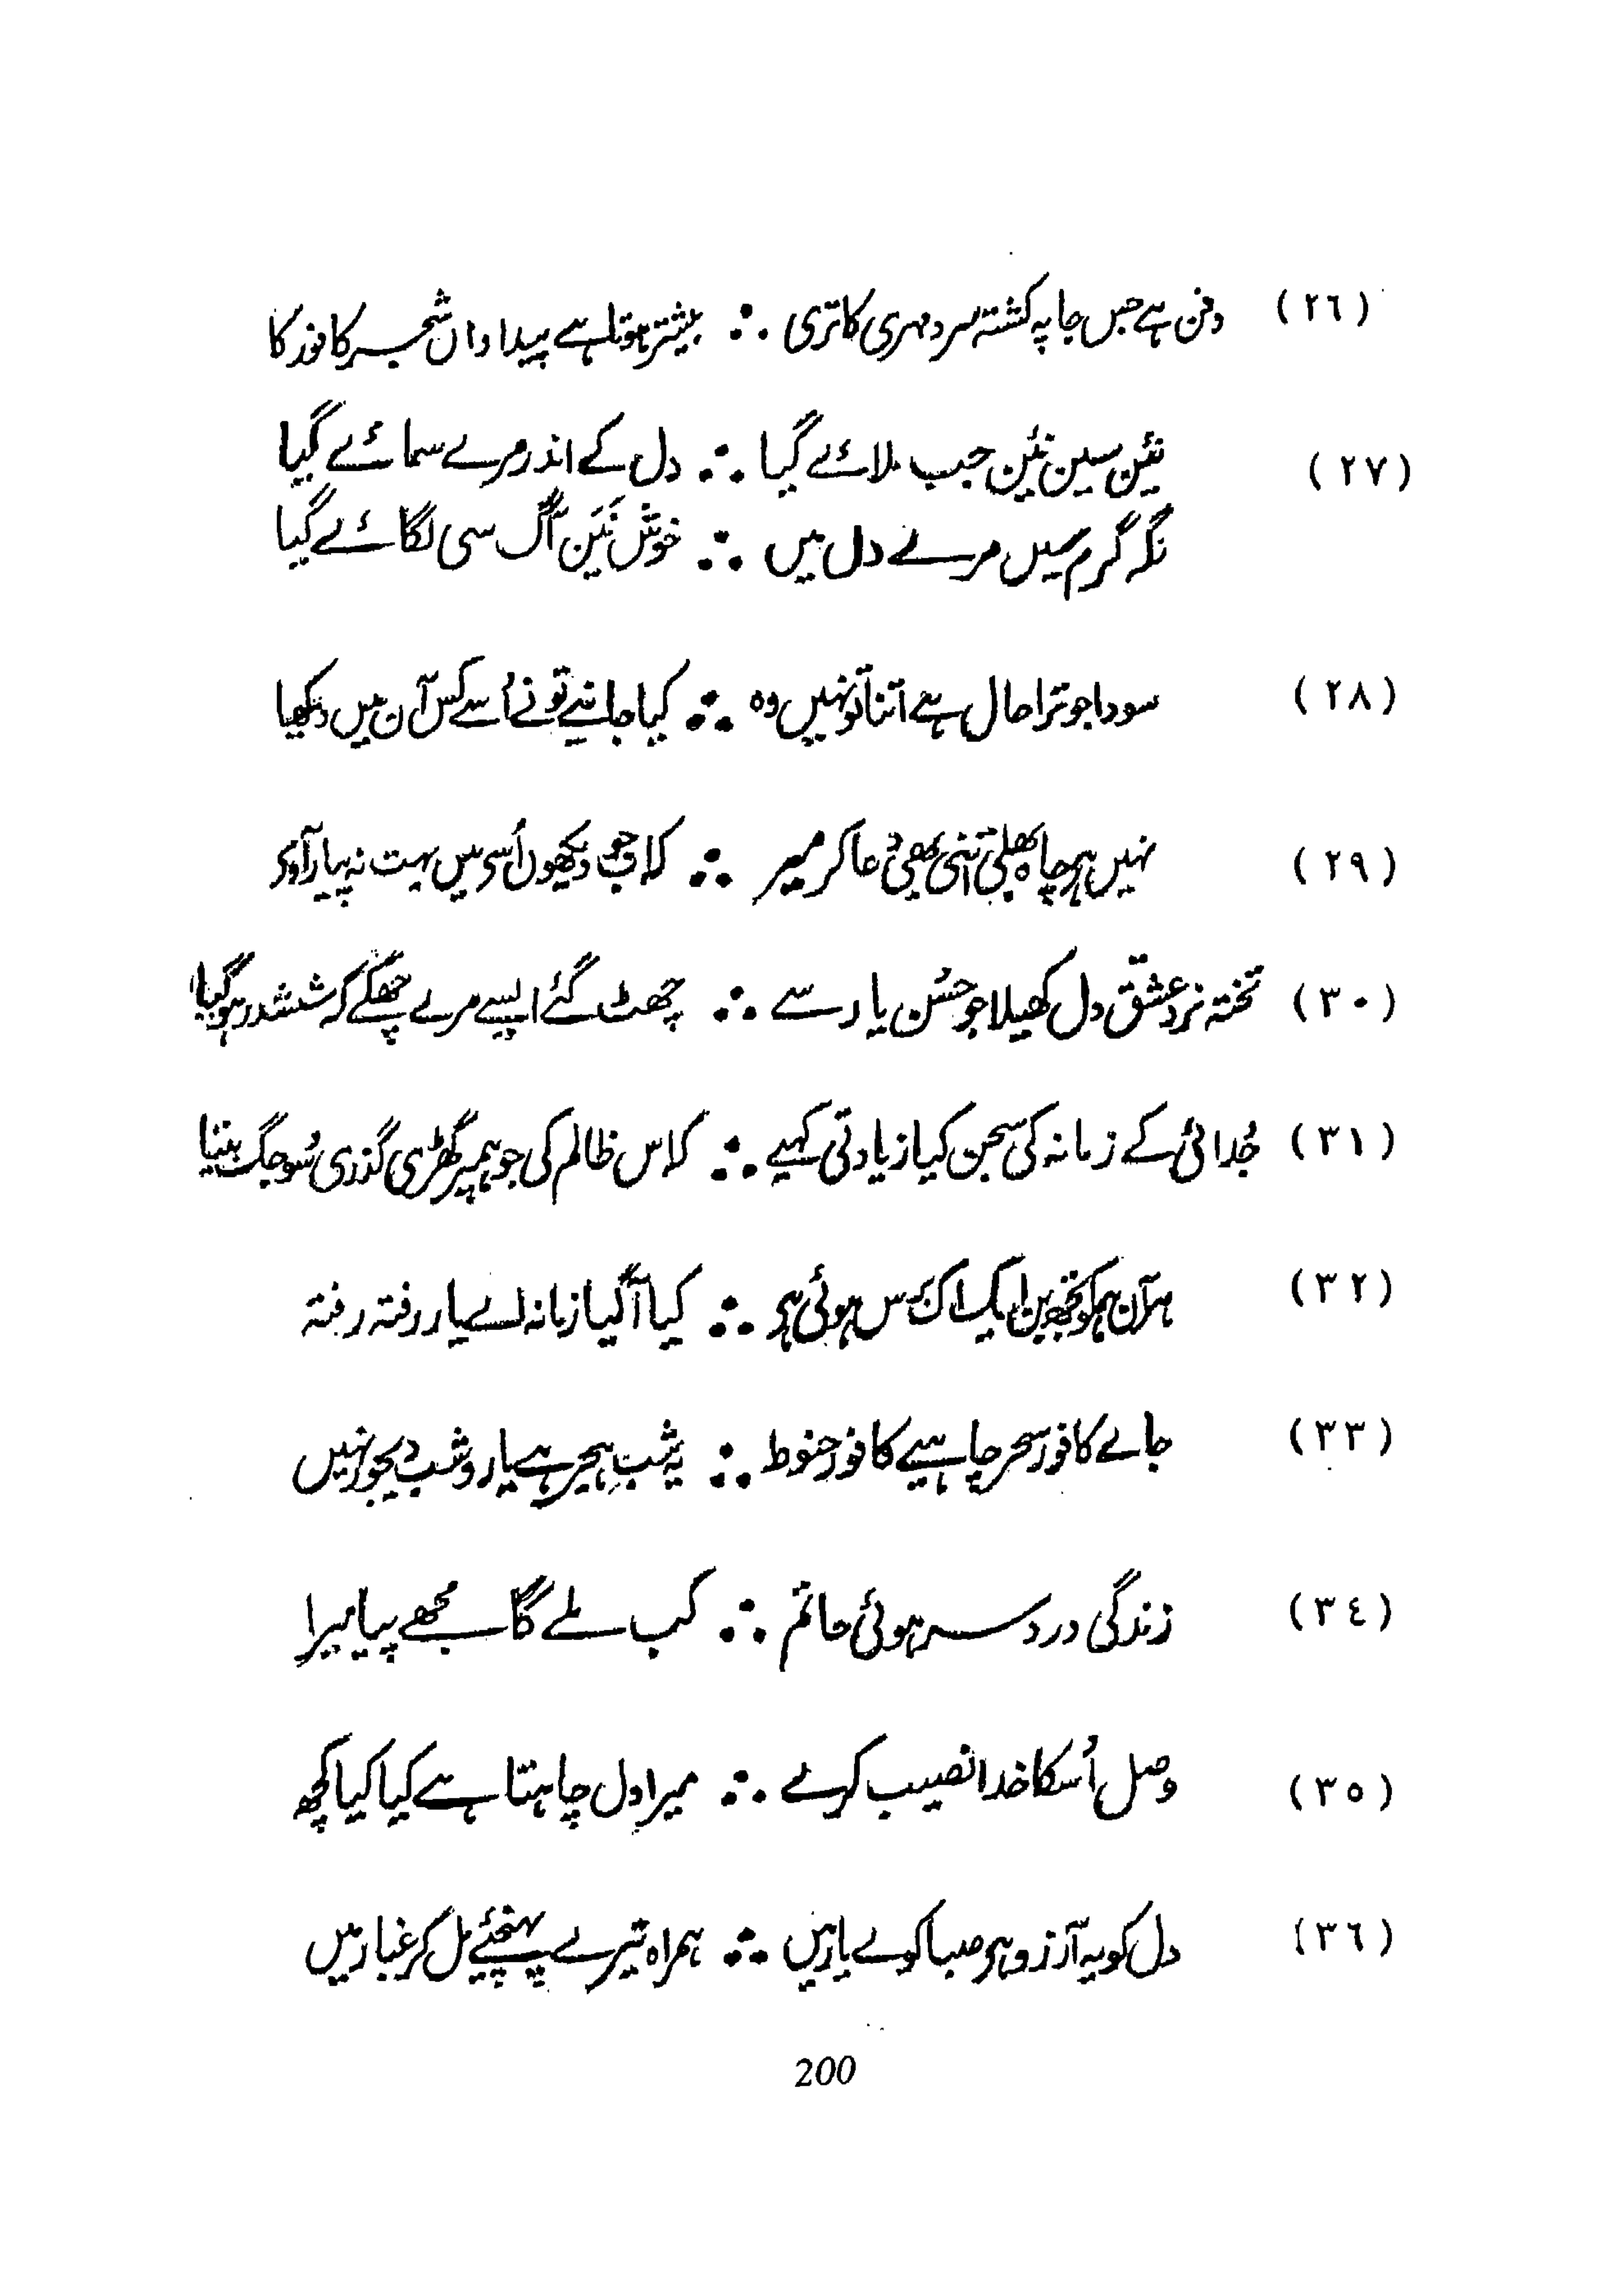 (٢٦) دفن ہے جس جا پہ کشتہ سرد مہری کا تری ∴ بیشتر ہوتا ہے پیدا واں شجر کافور کا
(٢٧) نَیَن سین نَیَن جب ملائے گیا ∴ دل کے اندر مرے سمائے گیا
نگہ گرم سیں مرے دل میں ∴ خوش نَیَن آگ سی لگائے گیا
(٢٨) سودا جو ترا حال ہے اتنا تو نہیں وہ ∴ کیا جانیے تو نے اُسے کس آن میں دیکھا
(٢٩) نہیں ہے چاہ بھلی اتنی بھی دُعا کر میر ∴ کہ اب جو دیکھوں اُسے میں بہت نہ پیار آوے
(٣٠) تختہ نرد عشق دل کھیلا جو حُسنِ یار سے ∴ چھٹ گئے ایسے مرے چھکے کہ ششدر ہوگیا
(٣١) جُدائی کے زمانہ کی سجن کیا زیادتی کہیے ∴ کہ اس ظالم کی جو ہم پر گھڑی گذری سُو جگ بیتا
(٣٢) ہر آن ہم کو تجھ بن ایک اک برس ہوئی ہے ∴ کیا آگیا زمانہ اے یار رفتہ رفتہ
(٣٣) جائے کافور سحر چاہیے کافور حنوط ∴ یہ شبِ ہجر ہے یارو شب دیجور نہیں
(٣٤) زندگی درد سر ہوئی حاتم ∴ کب ملے گا مُجھے پیا میرا
(٣٥) وصل اُسکا خدا نصیب کرے ∴ میرا دل چاہتا ہے کیا کیا کچھ
(٣٦) دل کو یہ آرزو ہے صبا کوے یار میں ∴ ہمراہ تیرے پہنچئے مل کر غبار میں
200